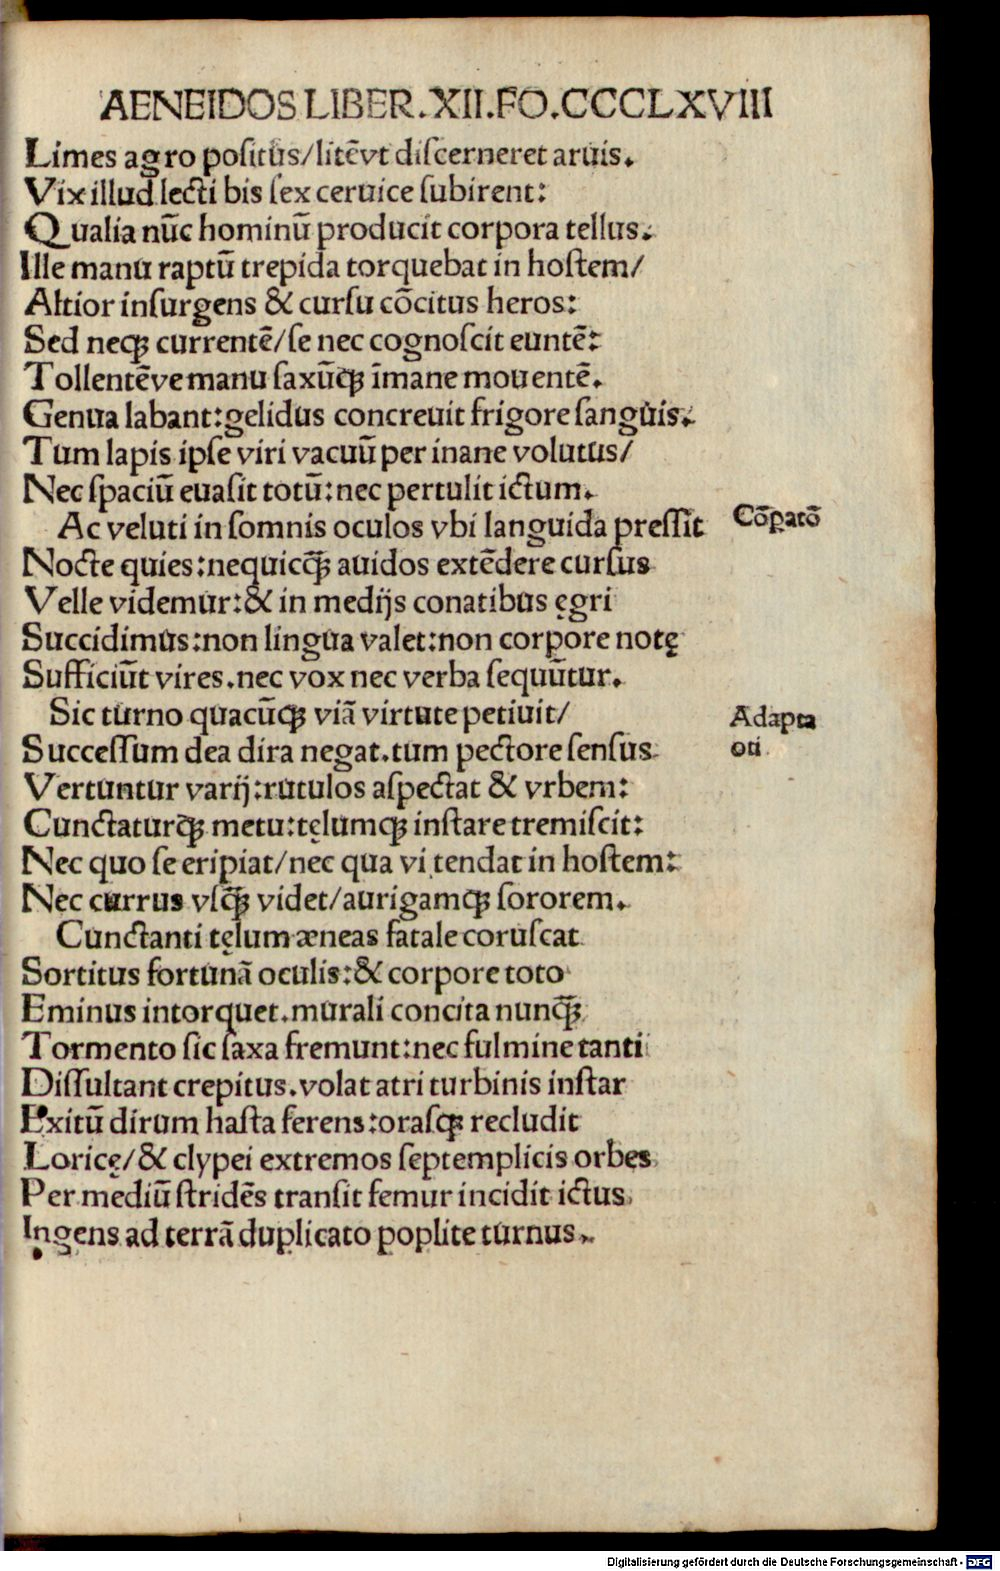 AENEIDOS LIBER.XII.FO.CCCLXVIII
Limes agro positus/litẽvt discerneret aruis.
Vix illud lecti bis sex ceruice subirent:
Qualia nũc hominũ producit corpora tellus.
Ille manu raptũ trepida torquebat in hostem/
Altior insurgens & cursu cõcitus heros:
Sed neqꝫ currentẽ/se nec cognoscit euntẽ:
Tollentẽve manu saxũqꝫ ĩmane mouentẽ.
Genua labant:gelidus concreuit frigore sanguis.
Tum lapis ipse viri vacuũ per inane volutus/
Nec spaciũ euasit totũ:nec pertulit ictum.
Ac veluti in somnis oculos vbi languida pressit
Cõꝑatõ
Nocte quies:nequicq̃ꝫ auidos extẽdere cursus
Velle videmur:& in medijs conatibus ęgri
Succidimus:non lingua valet:non corpore notę
Sufficiũt vires.nec vox nec verba sequũtur.
Sic turno quacũqꝫ viã virtute petiuit/
Adapta
Successum dea dira negat.tum pectore sensus
oti.
Vertuntur varij:rutulos aspectat & vrbem:
Cunctaturq̃ꝫ metu:tęlumqꝫ instare tremiscit:
Nec quo se eripiat/nec qua vi tendat in hostem:
Nec currus vsq̃ꝫ videt/aurigamqꝫ sororem.
Cunctanti tęlum æneas fatale coruscat
Sortitus fortunã oculis:& corpore toto
Eminus intorquet.murali concita nunq̃ꝫ
Tormento sic saxa fremunt:nec fulmine tanti
Dissultant crepitus.volat atri turbinis instar
Exitũ dirum hasta ferens:orasqꝫ recludit
Loricę/& clypei extremos septemplicis orbes
Per mediũ stridẽs transit femur incidit ictus
Ingens ad terrã duplicato poplite turnus.
Digitalisierung gefördert durch die Deutsche Forschungsgemeinschaft - DFG